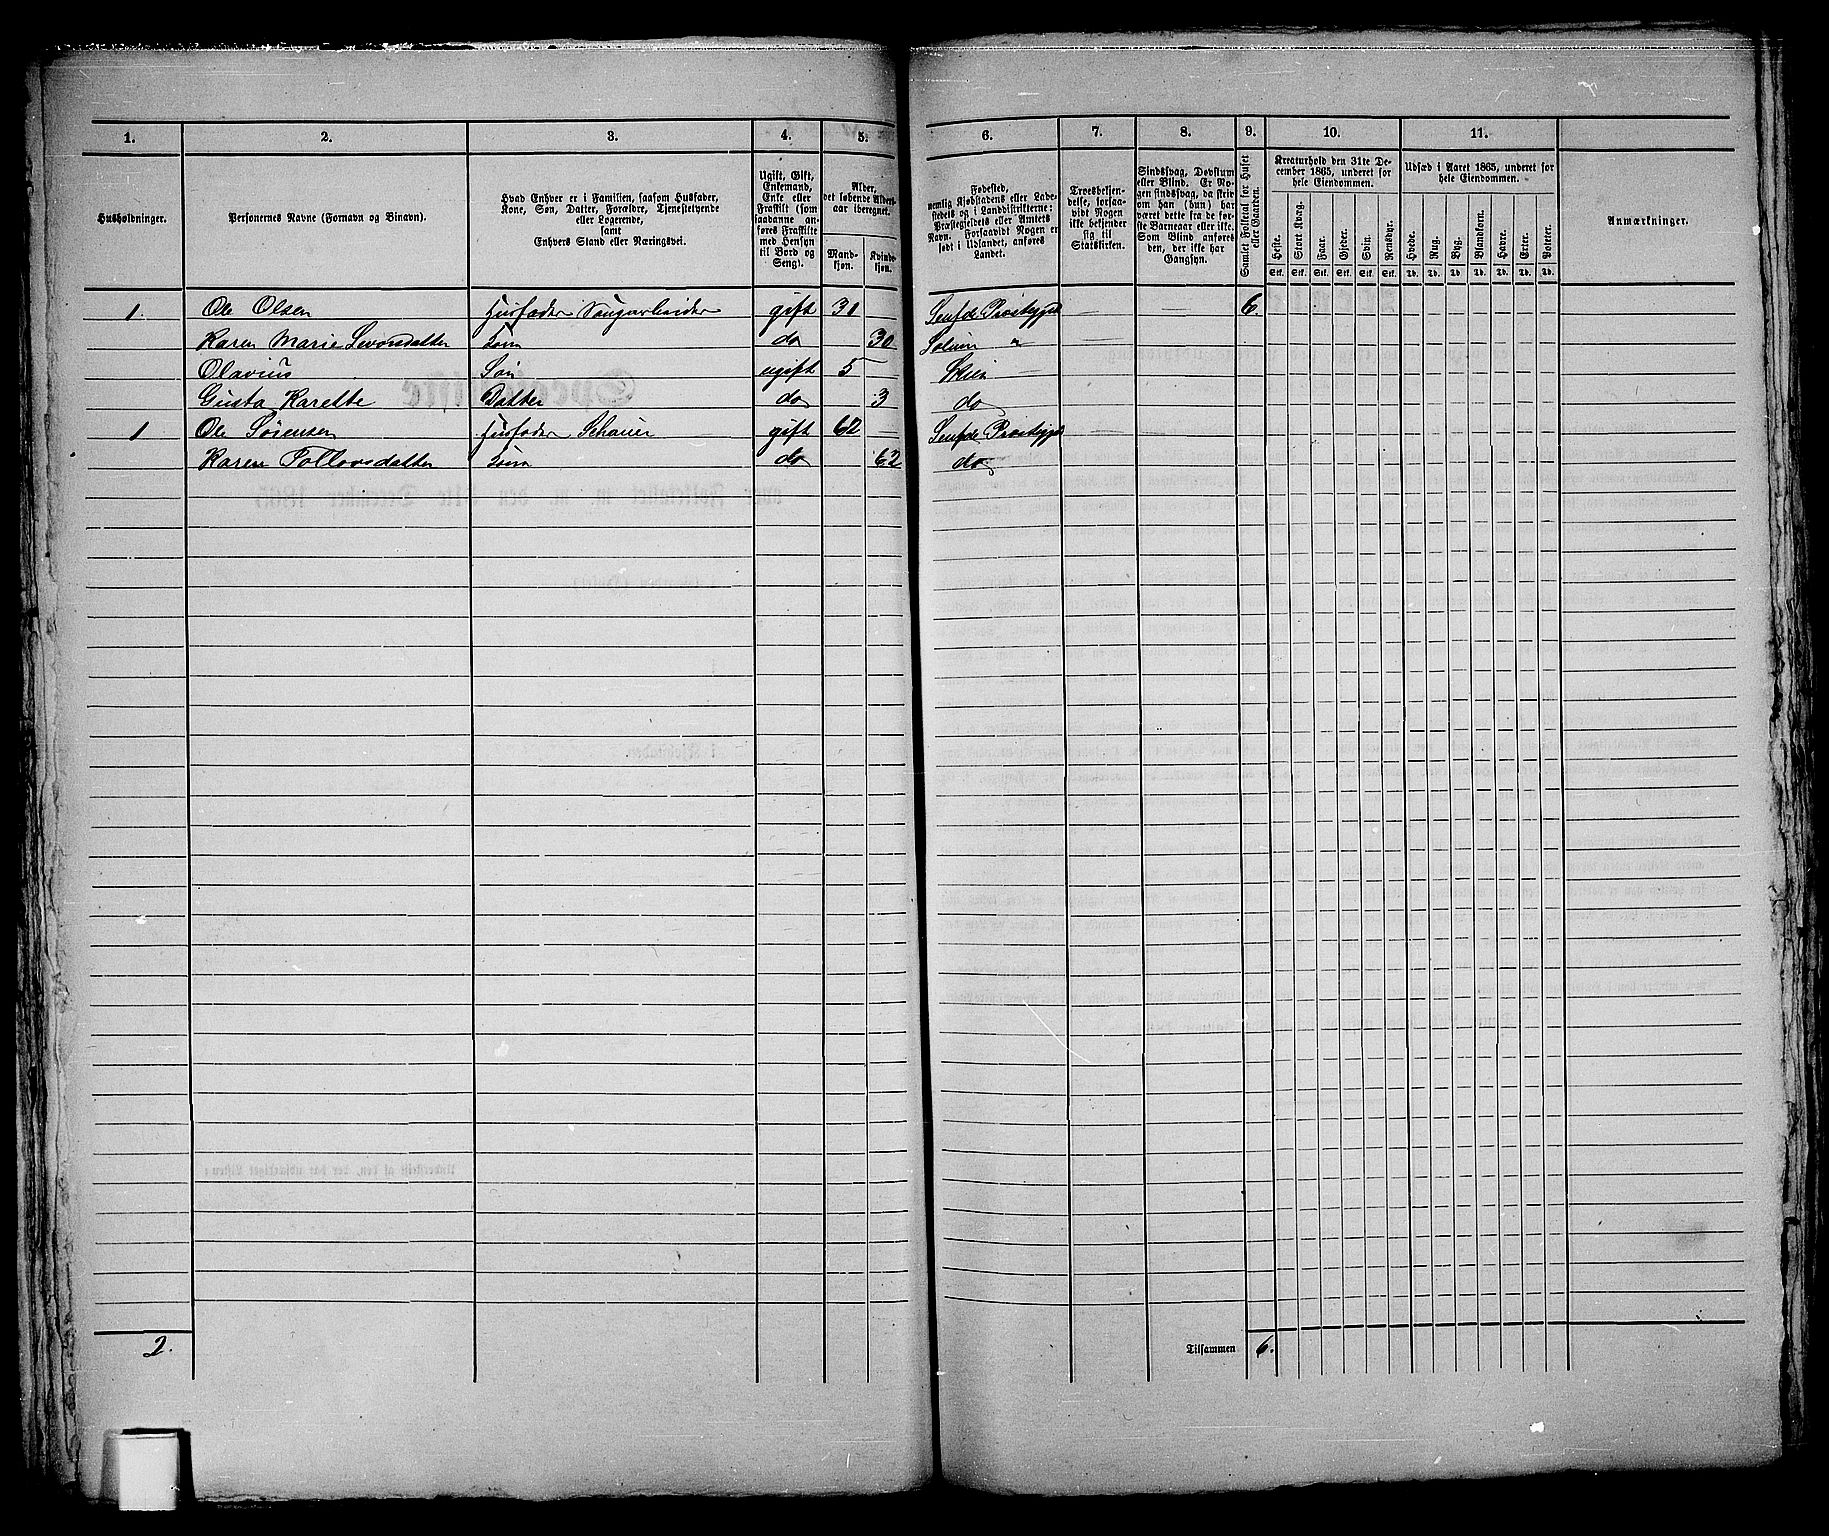 1. 2. 3. 4. 5. 6. 7. 8. 9. 10. 11.
Husholdninger.
Personernes Navne (Fornavn og Binavn).
Hvad Enhver er i Familien, saasom Husfader,
Kone, Søn, Datter, Forældre, Tjenestetyende
eller Logerende,
samt
Enhvers Stand eller Næringsvei.
Ugift, Gift,
Enkemand,
Enke eller
Fraskilt (som
saadanne an-
føres Fraskilte
med Hensyn
til Bord og
Seng).
Alder,
det løbende Alders-
aar iberegnet.
Mand-
kjøn.
Kvinde-
kjøn.
Fødested,
nemlig Kjøbstadens eller Lade-
stedets og i Landdistrikterne:
Præstegjeldets eller Amtets
Navn. Forsaavidt Nogen er
født i Udlandet, anføres
Landet.
Troesbekjen-
delse, forsaa-
vidt Nogen
ikke bekjender
sig til
Statskirken.
Sindssvag, Døvstum
eller Blind. Er No-
gen sindssvag, da skrives
om han (hun) har
været dette fra de før-
ste Barneaar eller ikke.
Som Blind anføres
den, der ikke har
Gangsyn.
Samlet Folketal for Huset
eller Gaarden.
Kreaturhold den 31te De-
cember 1865, underet for
hele Eiendommen.
Heste.
Stort Kvæg.
Faar.
Gjeder.
Svin.
Rensdyr.
Stk. Stk. Stk. Stk. Stk. Stk.
Udsæd i Aaret 1865, underet for
hele Eiendommen.
Hvede.
Rug.
Byg.
Blandkorn.
Havre.
Erter.
Poteter.
Td. Td. Td. Td. Td. Td. Td.
Anmærkninger.
1. Ole Olsen Husfader Saugarbeider gift 31 — — 6.
Karen Marie do 30 Solum "
Olavius Søn ugift 5 Skien
Gusta Karette Datter do 3 do
1 Ole Sørensen Husfader gift 62
Karen do 62 do
2. Tilsammen 6.